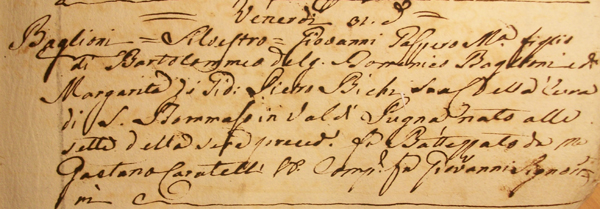 = Venerdì 31. d° =
Baglioni = Silvestro = Giovanni Gaspero Mª figlio
di Bartolommeo del q. Domenico Baglioni e di
Margarita di Piero Bichi sua della Cura
di S. Tommaso in Val di Pugna nato alle
sette della sera preced. fu Battezzato da me
Gaetano Caratelli Comp. fu Giovanni Signor
ni